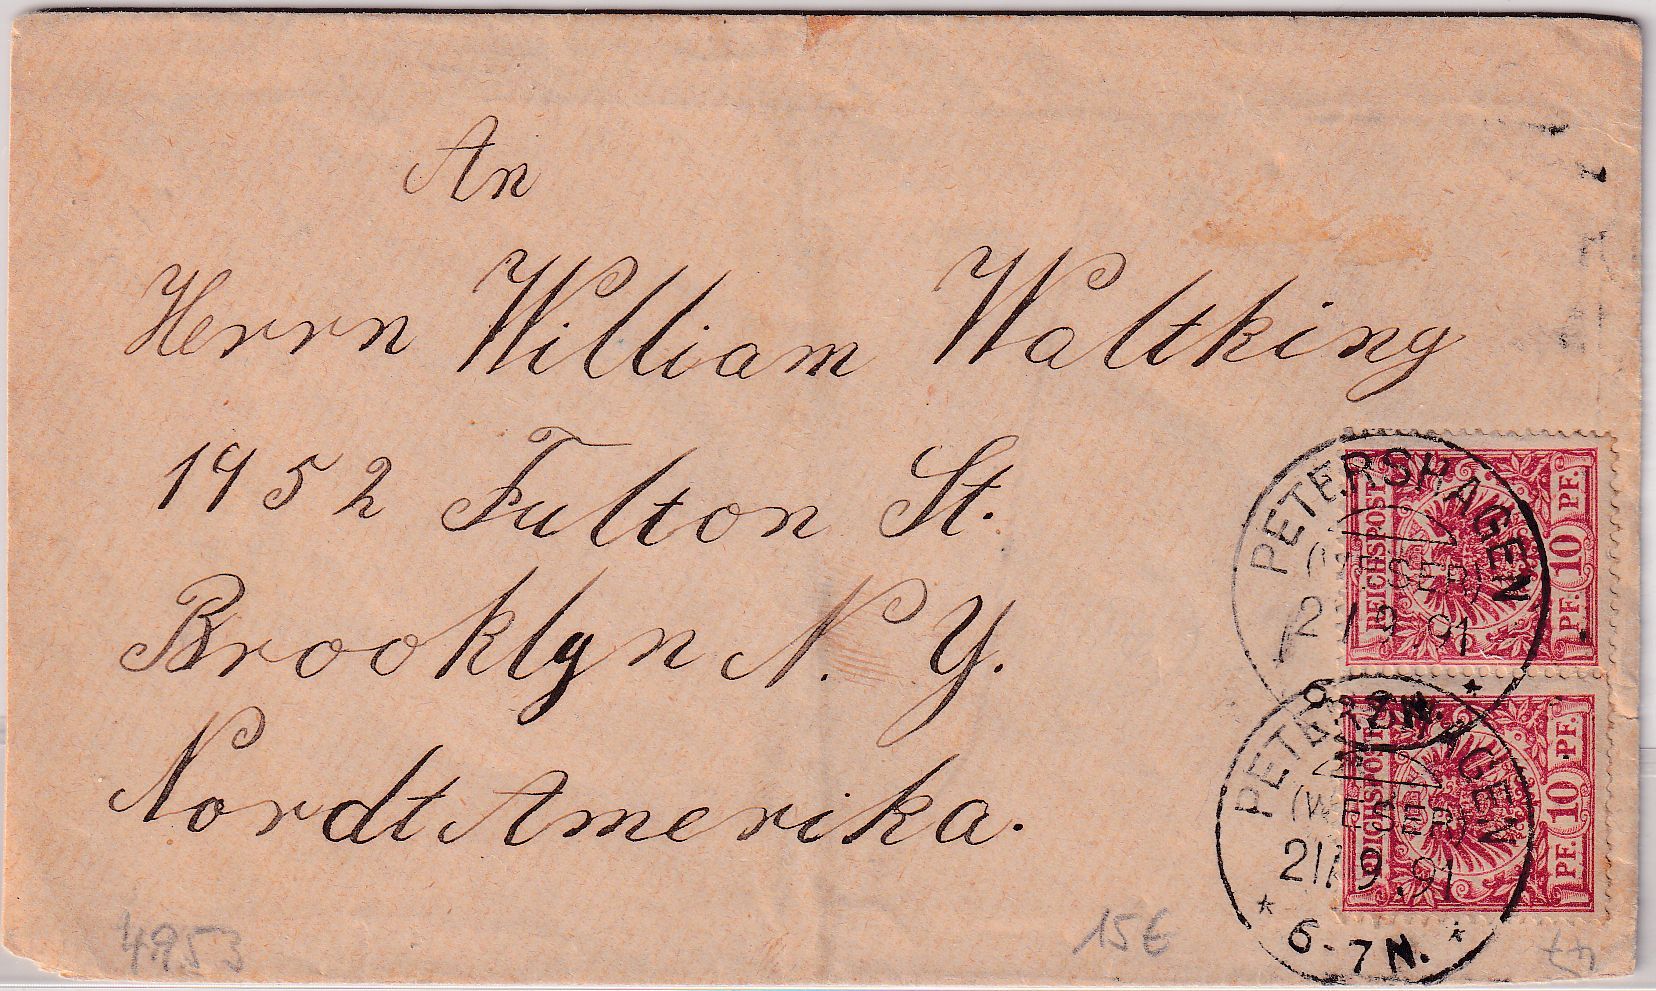 An
Herrn William Waltking
1952 Fulton St.
Brooklyn N. Y.
Nordt Amerika.
REICHSPOST
PF. 10 PF.
PETERSHAGEN
(WESER)
21 9 91
REICHSPOST
PF. 10 PF.
PETERSHAGEN
(WESER)
21/9.91
* 6-7N. *
4953
15€